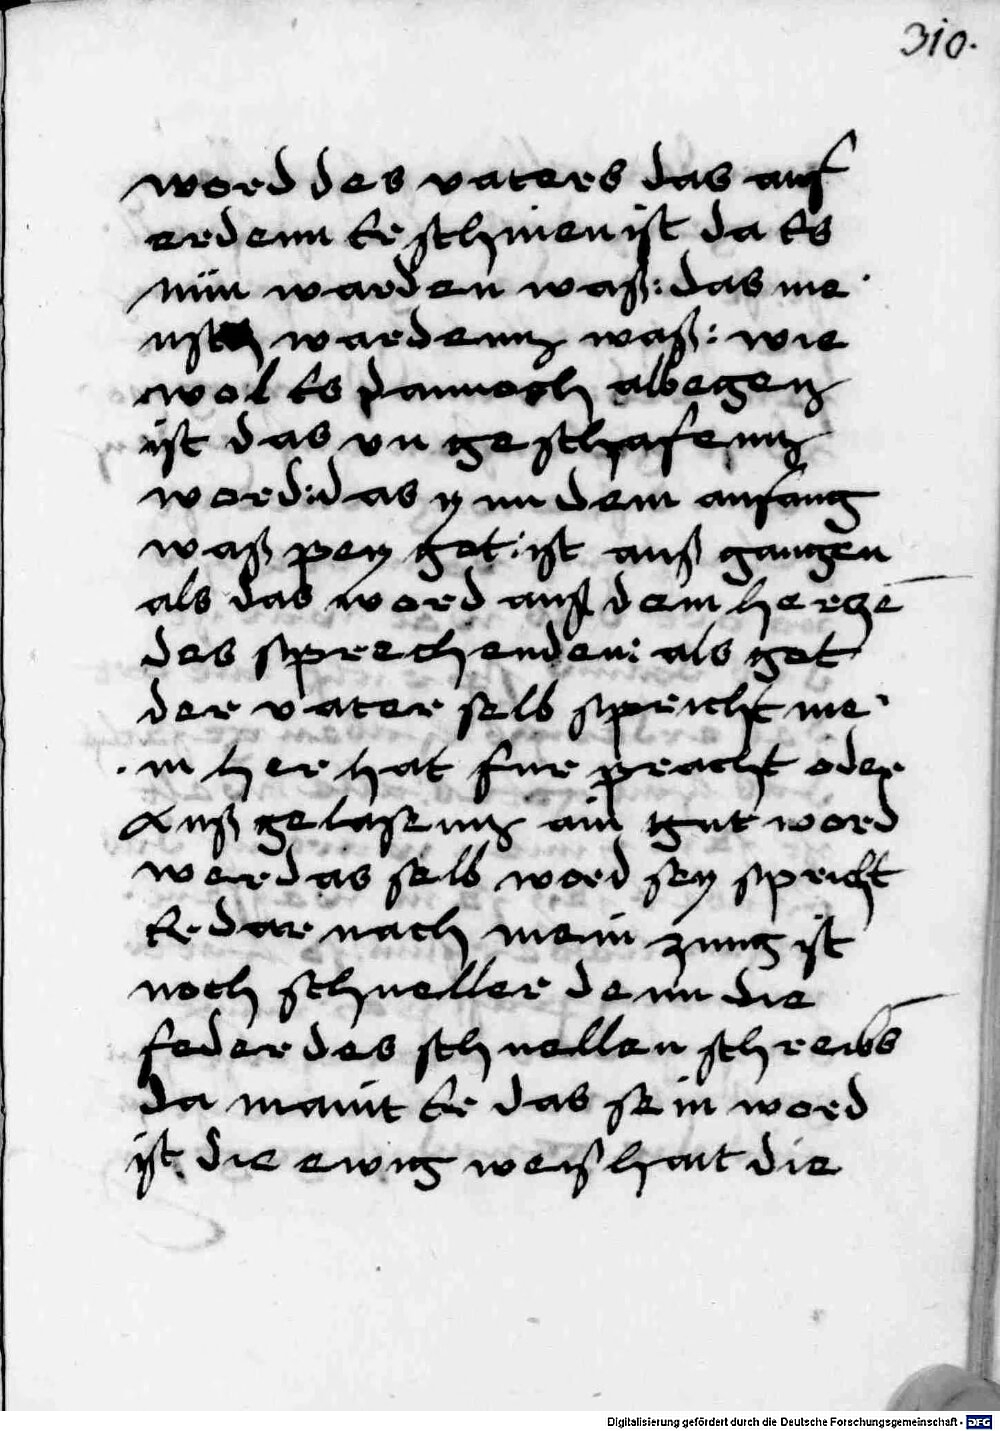 310.
word des vaters das auf
erdenn Er schinen ist da Es
nun warden waß: das me
nsch wardenn waß: wie
wol Es dannoch albegen
ist das vn geschafenn
word: das ynn dem anfang
waß pey got: ist auß gangen
als das word auß dem hercze
des sprechenden: als got
der vater selb spricht me
in her hat fur pracht oder
auß gelasenn ain gut word
wer das selb word sey spricht
Er dar nach mein zung ist
noch schneller denn die
feder des schnellen schreibs
da maint Er das sein word
ist die ewig weißhait die
Digitalisierung gefördert durch die Deutsche Forschungsgemeinschaft - DFG